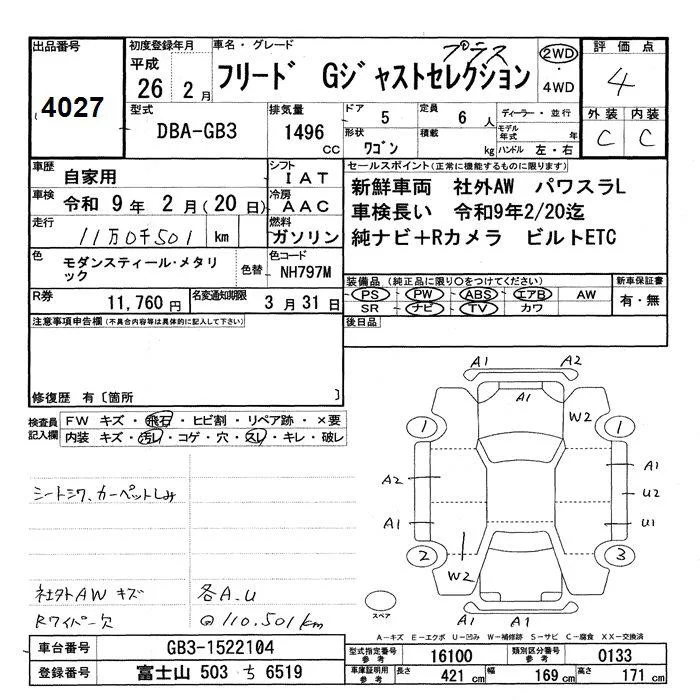 出品番号
4027
初度登録年月
平成
26 年 2 月
車名・グレード
プラス
フリード Gジャストセレクション
2WD
・
4WD
評価点
4
外装 内装
C C
型式
DBA-GB3
排気量
1496 cc
ドア 5
定員 6 人
形状 ワゴン
積載 kg
ディーラー・並行
モデル年式 年
ハンドル 左・右
車歴 自家用
シフト IAT
車検 令和 9 年 2 月(20 日)
冷房 AAC
走行 11万0千501 km
燃料 ガソリン
色 モダンスティール・メタリック
色替
色コード NH797M
R券 11,760 円
名変通知期限 3 月 31 日
セールスポイント(正常に機能するものに限ります)
新鮮車両 社外AW パワスラL
車検長い 令和9年2/20迄
純ナビ+Rカメラ ビルトETC
装備品(純正品に限り○をつけてください)
PS PW ABS エアB AW
SR ナビ TV カワ
新車保証書
有・無
後日品
注意事項申告欄(不具合内容等は具体的に記入して下さい)
修復歴 有〔箇所 〕
検査員記入欄
FW キズ・飛石・ヒビ割・リペア跡・×要
内装 キズ・汚レ・コゲ・穴・スレ・キレ・破レ
シートシワ、カーペットしみ
社外AW キズ 各A.U
Rワイパー欠 @110,501km
A1 A2
A1
W2
1 1
A2 A1
U2
A1 U1
2 3
W2
A1 A1
スペア
A−キズ E−エクボ U−凹み W−補修跡 S−サビ C−腐食 XX−交換済
車台番号 GB3-1522104
登録番号 富士山 503 ち 6519
型式指定番号 参考 16100
類別区分番号 参考 0133
車庫証明用 参考 長さ 421 cm 幅 169 cm 高さ 171 cm